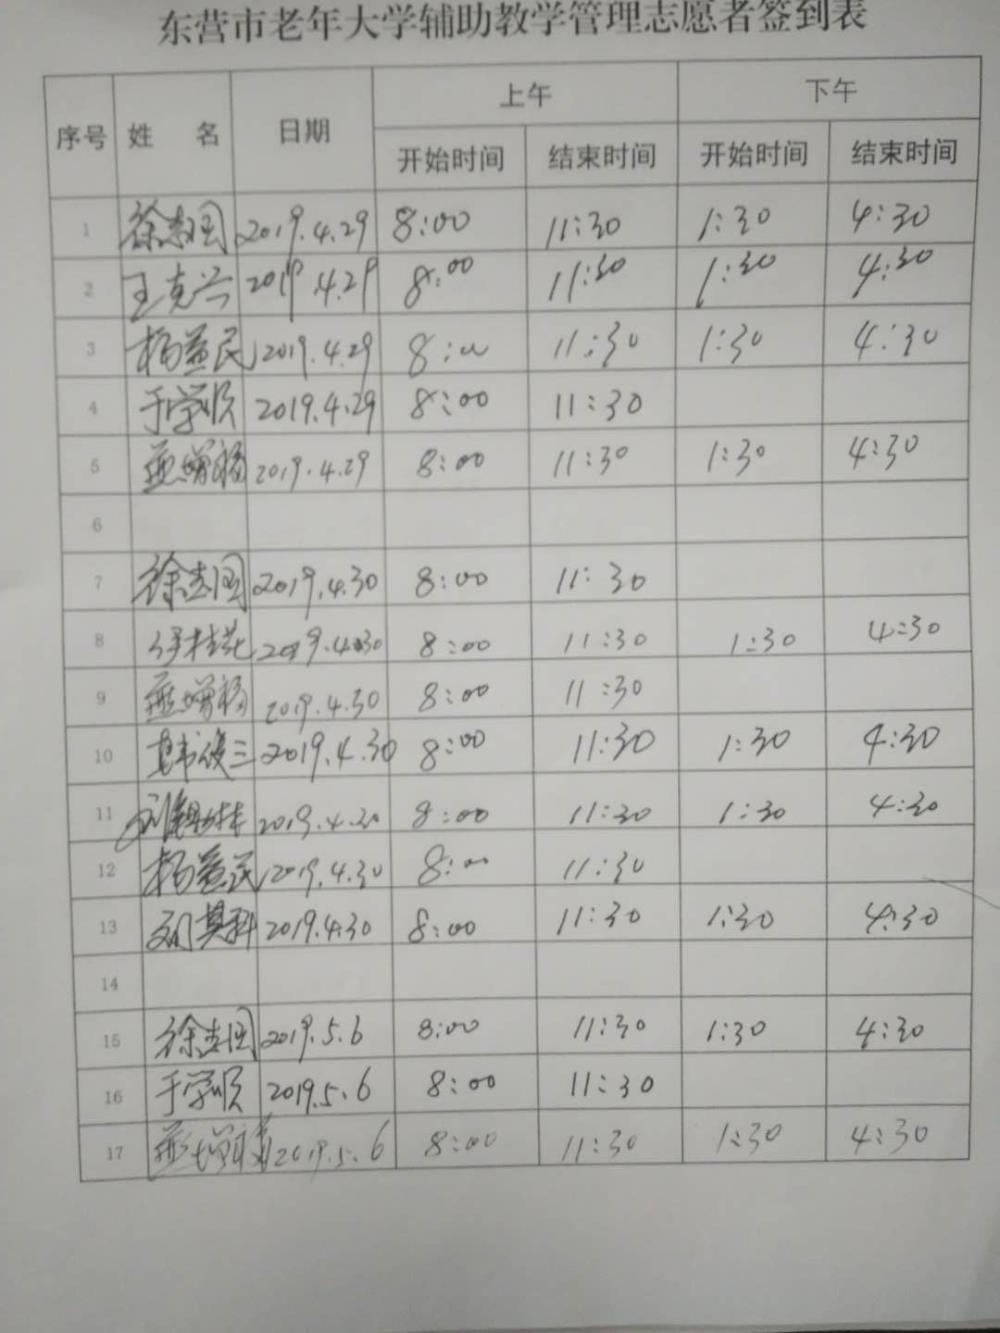 东营市老年大学辅助教学管理志愿者签到表
序号 姓 名 日期 上午 下午
开始时间 结束时间 开始时间 结束时间
1 徐志国 2019.4.29 8:00 11:30 1:30 4:30
2 王克兴 2019.4.29 8:00 11:30 1:30 4:30
3 杨益民 2019.4.29 8:00 11:30 1:30 4:30
4 于学顺 2019.4.29 8:00 11:30
5 2019.4.29 8:00 11:30 1:30 4:30
6
7 徐志国 2019.4.30 8:00 11:30
8 伊桂花 2019.4.30 8:00 11:30 1:30 4:30
9 2019.4.30 8:00 11:30
10 韩俊三 2019.4.30 8:00 11:30 1:30 4:30
11 2019.4.30 8:00 11:30 1:30 4:30
12 杨益民 2019.4.30 8:00 11:30
13 2019.4.30 8:00 11:30 1:30 4:30
14
15 徐志国 2019.5.6 8:00 11:30 1:30 4:30
16 于学顺 2019.5.6 8:00 11:30
17 2019.5.6 8:00 11:30 1:30 4:30